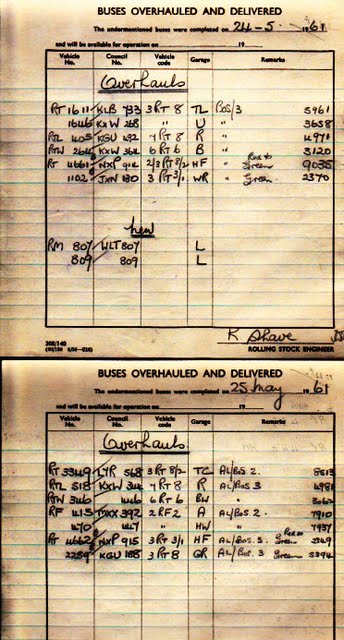 BUSES OVERHAULED AND DELIVERED
The undermentioned buses were completed on 24-5- 1961
and will be available for operation on 19
Vehicle No. Council No. Vehicle code Garage Remarks
Overhauls
RT 1611 KLB 733 3 RT 8 TL BOS/3 5961
1646 KXW 268 " U " 3658
RTL 405 KGU 492 4 RT 8 R " 4971
RTW 264 KXW 364 6 RT 6 B " 3120
Red to
RT 4661 NXP 914 2/3 RT 8/2 HF " Green 9035
1102 JXN 130 3 RT 3/1 WR " Green 2370
New
RM 807 WLT 807 L
809 809 L
K Shave
ROLLING STOCK ENGINEER
BUSES OVERHAULED AND DELIVERED
The undermentioned buses were completed on 25 May 1961
and will be available for operation on 19
Vehicle No. Council No. Vehicle code Garage Remarks
Overhauls
RT 3349 LYR 568 3 RT 8/2 TC AL/BOS 2. 8513
RTL 518 KXW 4 RT 8 R AL/BOS 3 4981
RTW 346 6 RT 6 BW "
RF 415 MXX 392 2 RF 2 A AL/BOS 2. 7910
470 447 " HW " 7937
RT 4662 NXP 915 3 RT 3/1 HF AL/BOS.3. Green
2259 KGU 188 3 RT 8 GR AL/BOS 3 Green 5394